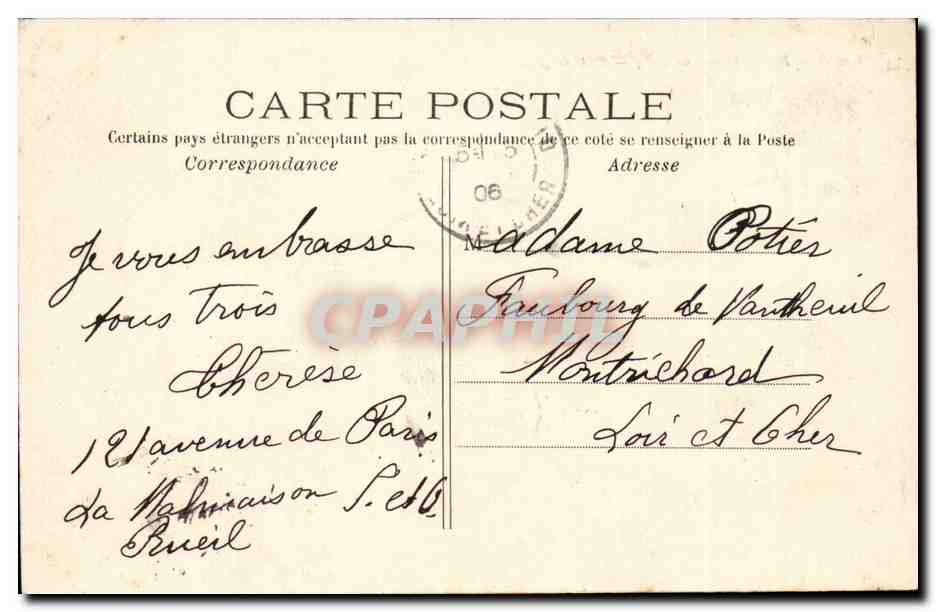 CARTE POSTALE
Certains pays étrangers n'acceptant pas la correspondance de ce coté se renseigner à la Poste
Correspondance
Adresse
06
CHER
Je vous embrasse
tous trois
Thérèse
121 avenue de Paris
La Malmaison S. et O.
Rueil
Madame Potier
Faubourg de Nantheuil
Montrichard
Loir et Cher
CPAPHIL